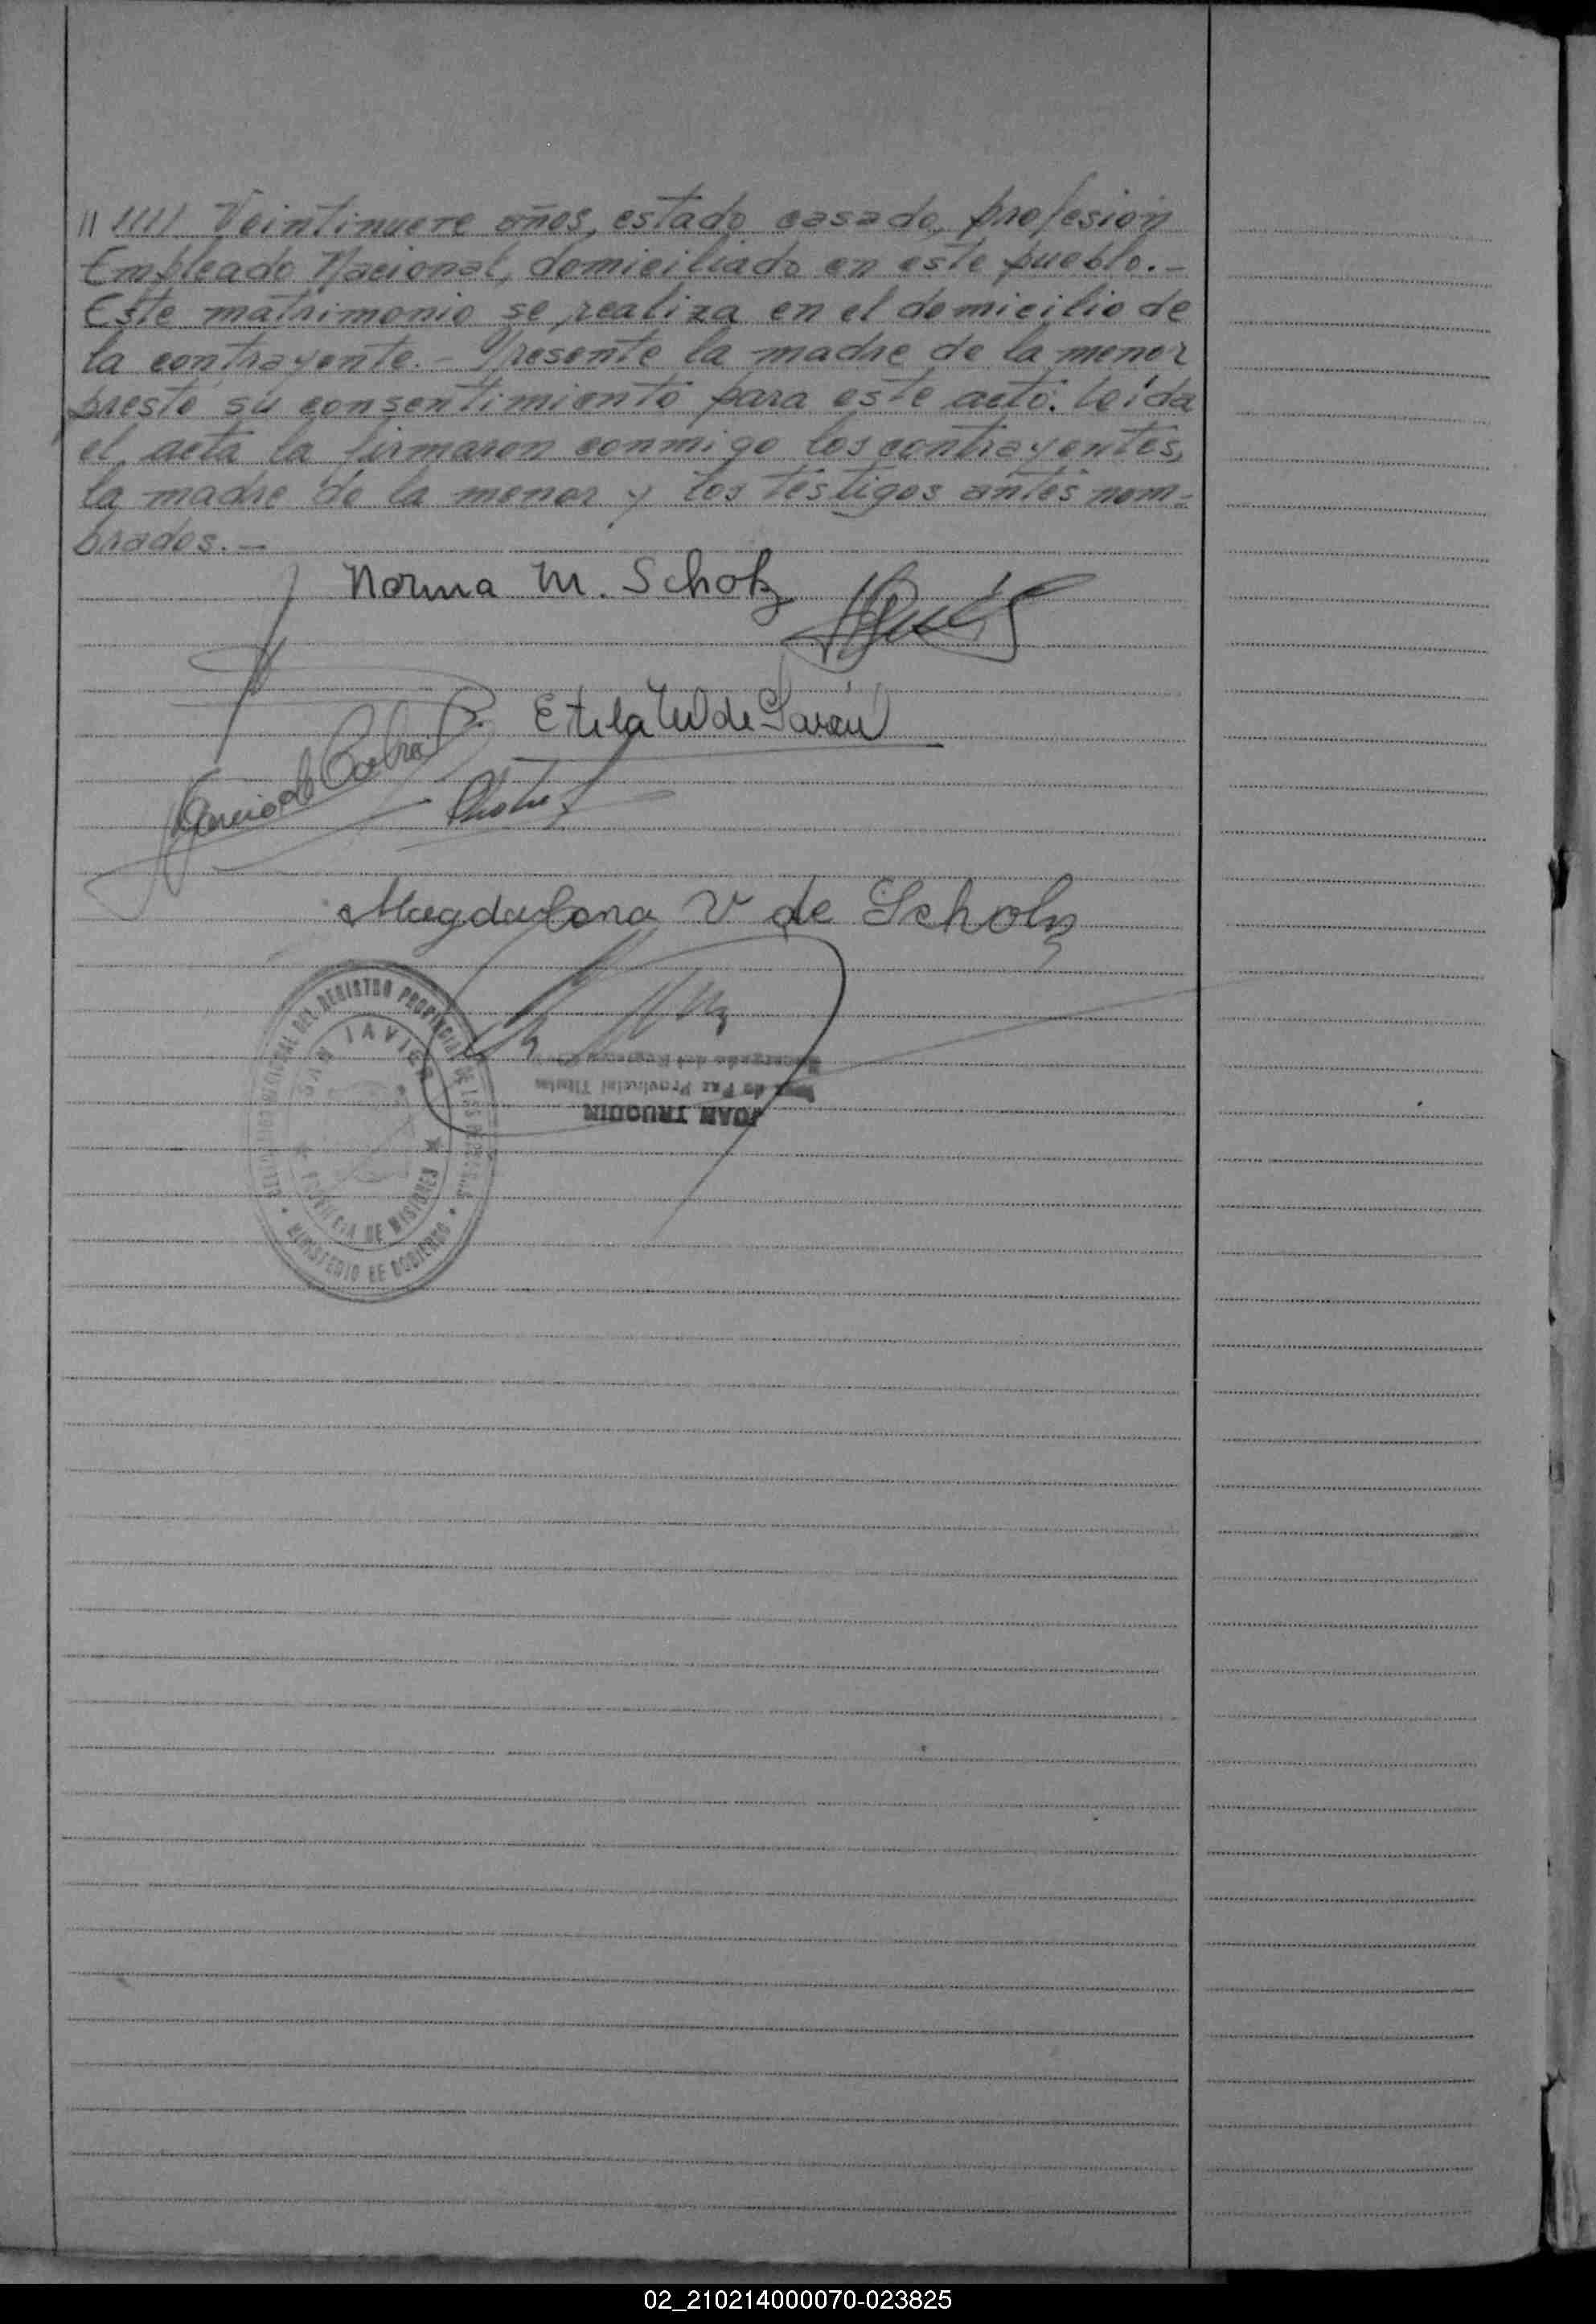 // //// Veintinueve años, estado casado, profesión
Empleado Nacional, domiciliado en este pueblo.-
Este matrimonio se realiza en el domicilio de
la contrayente.- Presente la madre de la menor
prestó su consentimiento para este acto. Leída
el acta la firmaron conmigo los contrayentes,
la madre de la menor y los testigos antes nom-
brados.-
Norma M. Scholz
Etela W de
Cabral
Magdalena V de Scholz
DEL REGISTRO PROVINCIAL DE LAS PERSONAS
SAN JAVIER
PROVINCIA DE MISIONES
MINISTERIO DE GOBIERNO
Encargado del Registro
Juez de Paz Provincial Titular
JUAN TRUQUIN
02_210214000070-023825